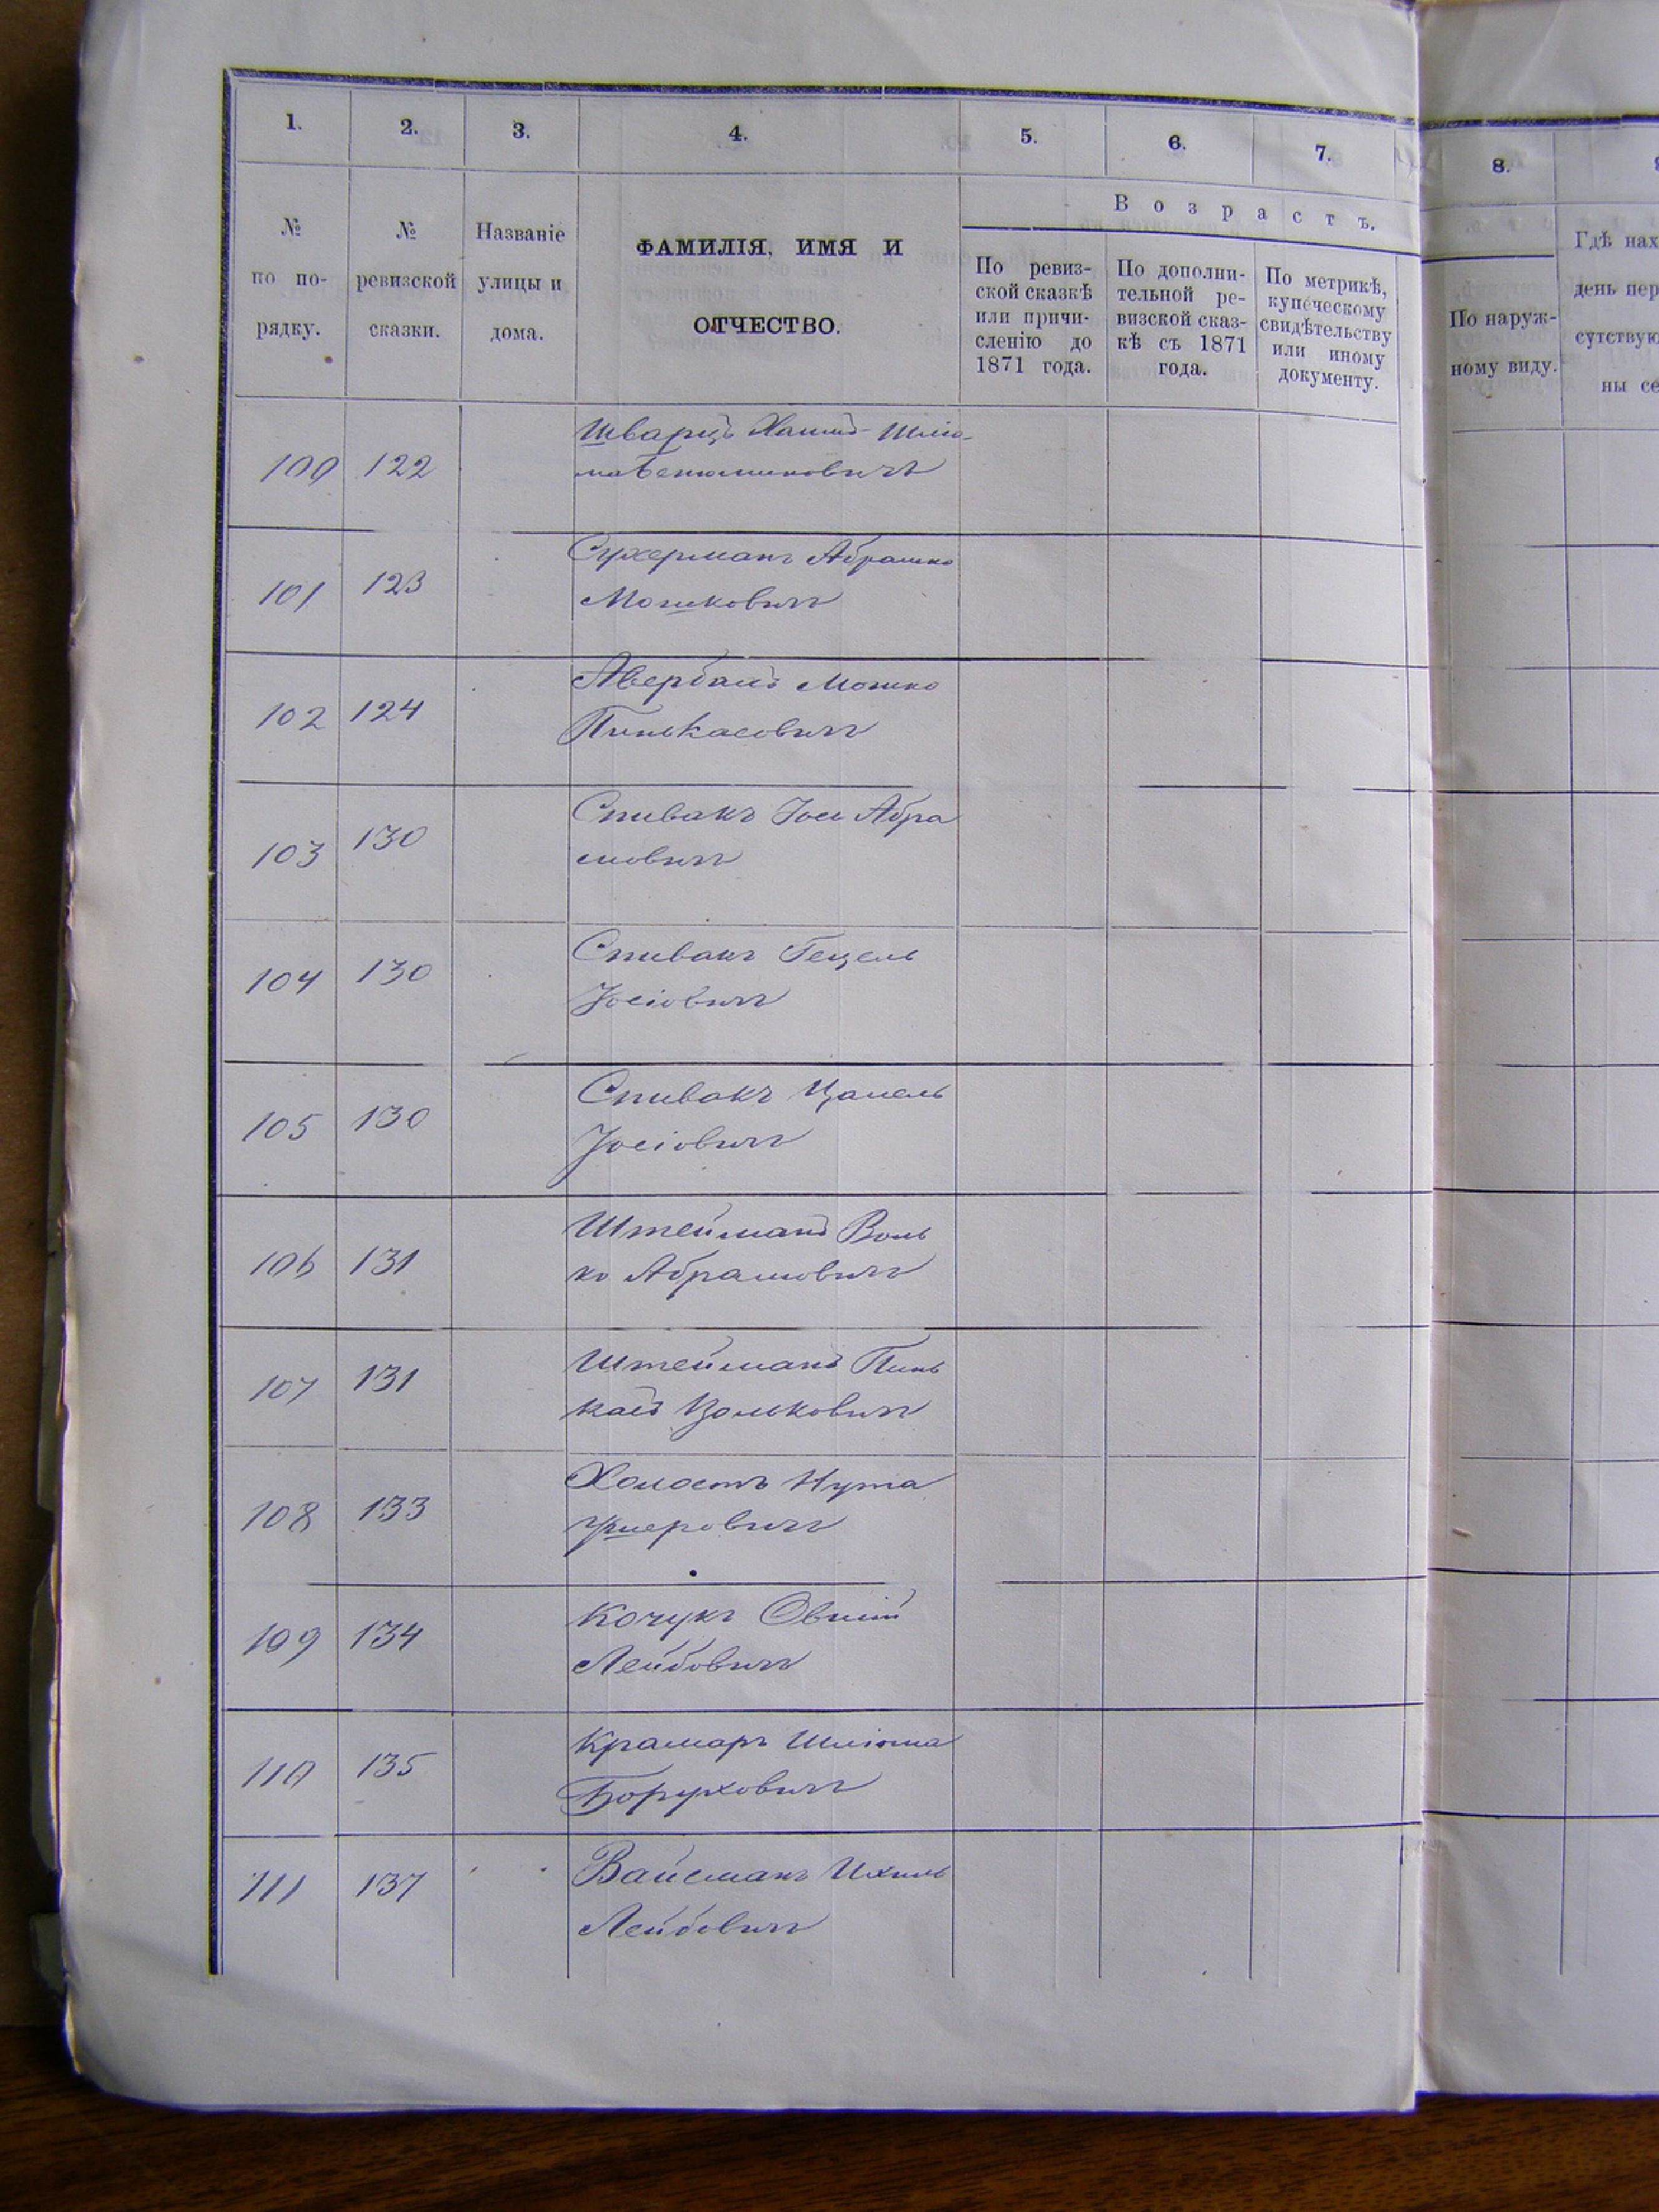 1. 2. 3. 4. 5. 6. 7. 8.
№ по по-рядку.
№ ревизской сказки.
Названіе улицы и дома.
ФАМИЛІЯ, ИМЯ И
ОТЧЕСТВО.
Возрастъ.
По ревиз-
ской сказкѣ
или причи-
сленію до
1871 года.
По дополни-
тельной ре-
визской сказ-
кѣ съ 1871
года.
По метрикѣ,
купеческому
свидѣтельству
или иному
документу.
По наруж-
ному виду.
Гдѣ нах
день пер
сутствую
ны се
100 122 Шварцъ Хаимъ-Шлiо-
ма Бенюминовичъ
101 123 Сухерманъ Абрашко
Мошковичъ
102 124 Авербахъ Мошко
Пинькасовичъ
103 130 Спивакъ Іось Абра
мовичъ
104 130 Спивакъ Гецель
Іосіовичъ
105 130 Спивакъ
Іосіовичъ
106 131 Штейманъ Воль
ко Абрамовичъ
107 131 Штейманъ Пинь
касъ Волькович
108 133 Холостъ Нута
Ушеровичъ
109 134 Кочукъ Овшій
Лейбовичъ
110 135 Крамаръ Шліома
Боруховичъ
111 137 Вайсманъ Ихиль
Лейбовичъ